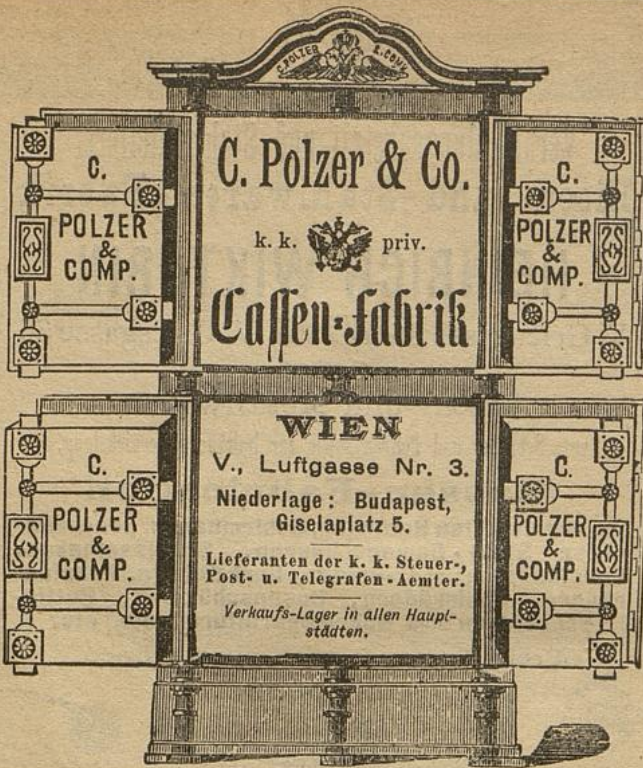 C. POLZER & COMP.
C.
POLZER
&
COMP.
C. Polzer & Co.
k. k. priv.
Cassen-Fabrik
C.
POLZER
&
COMP.
C.
POLZER
&
COMP.
WIEN
V., Luftgasse Nr. 3.
Niederlage: Budapest,
Giselaplatz 5.
Lieferanten der k. k. Steuer-,
Post- u. Telegrafen-Aemter.
Verkaufs-Lager in allen Haupt-
städten.
C.
POLZER
&
COMP.